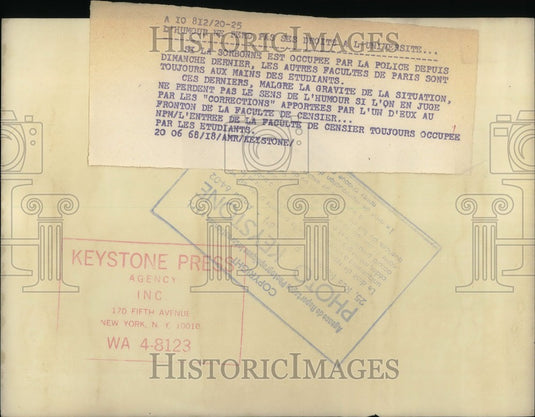 A IO 812/20-25
L'HUMOUR NE PERD PAS SES DROITS A L'UNIVERSITE...
SI LA SORBONNE EST OCCUPEE PAR LA POLICE DEPUIS
DIMANCHE DERNIER, LES AUTRES FACULTES DE PARIS SONT
TOUJOURS AUX MAINS DES ETUDIANTS.
CES DERNIERS, MALGRE LA GRAVITE DE LA SITUATION,
NE PERDENT PAS LE SENS DE L'HUMOUR SI L'ON EN JUGE
PAR LES "CORRECTIONS" APPORTEES PAR L'UN D'EUX AU
FRONTON DE LA FACULTE DE CENSIER...
NPM/L'ENTREE DE LA FACULTE DE CENSIER TOUJOURS OCCUPEE
PAR LES ETUDIANTS.
20 06 68/18/AMR/KEYSTONE/
KEYSTONE PRESS
AGENCY
INC
170 FIFTH AVENUE
NEW YORK, N. Y. 10010
WA 4-8123
COPYRIGHT
PHOTO KEYSTONE
Historic Images
Historic Images
Historic Images